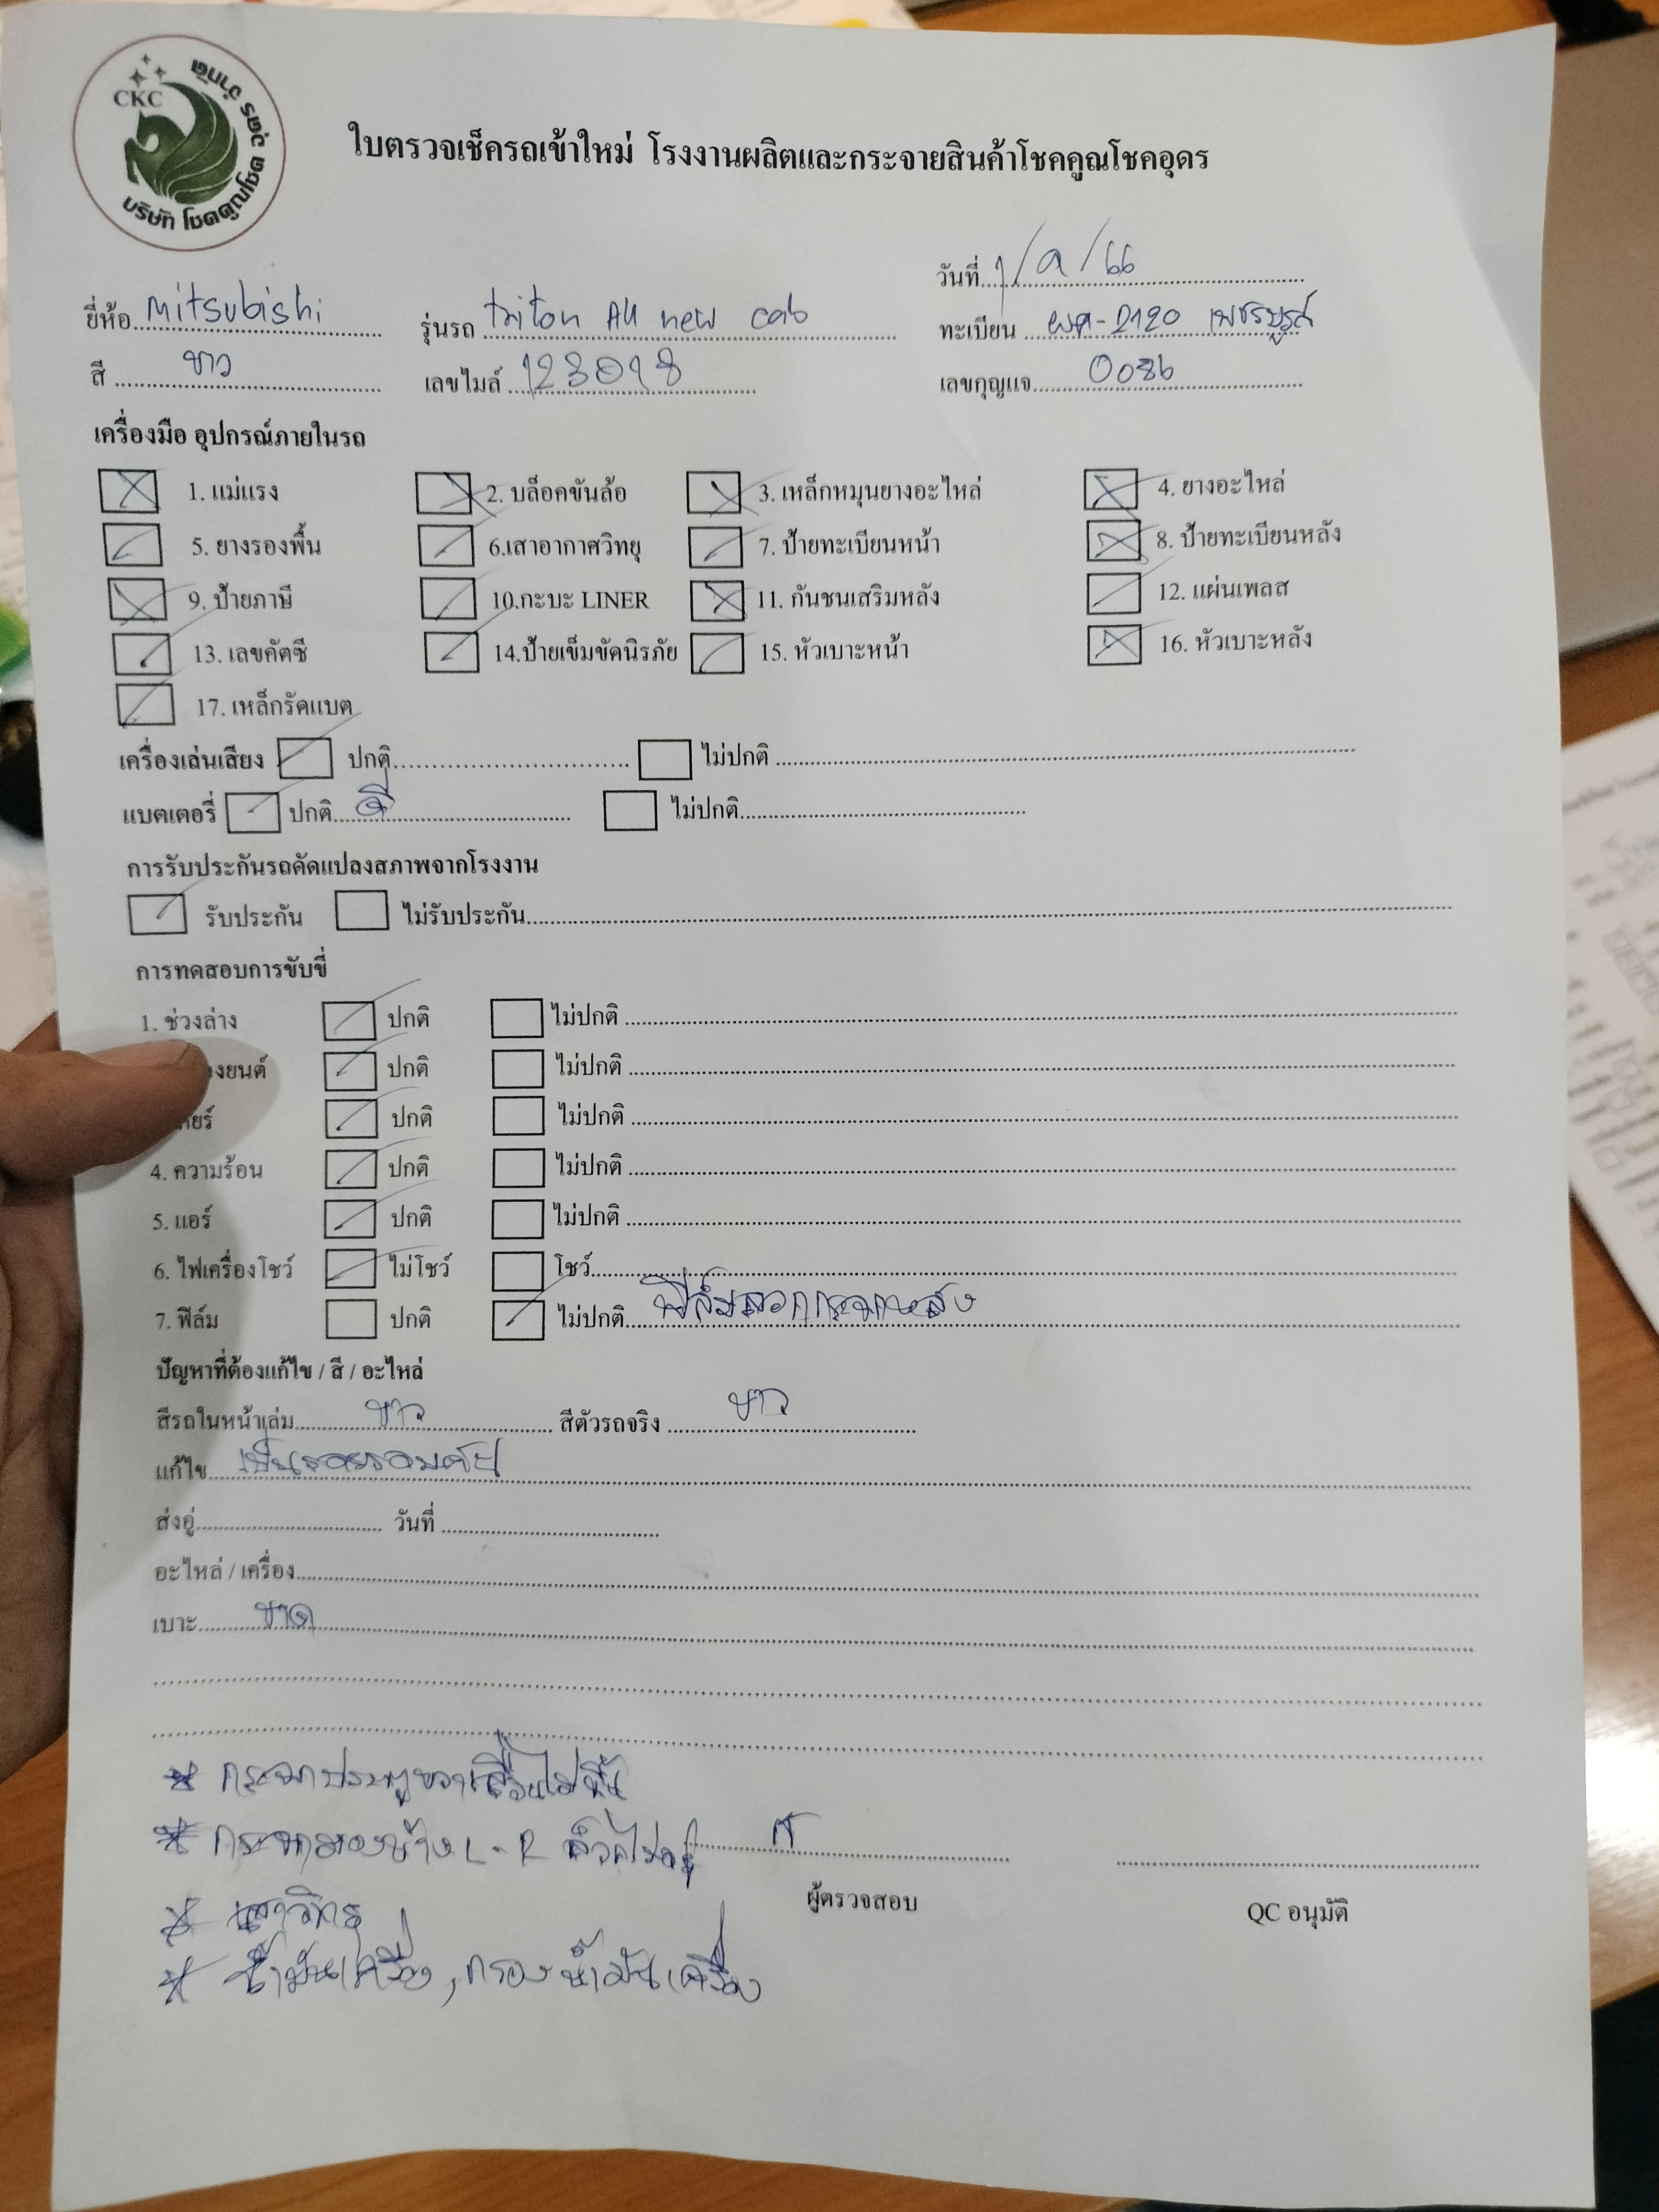 CKC
บริษัท โชคคูณโชค อุดร จำกัด
ใบตรวจเช็ครถเข้าใหม่ โรงงานผลิตและกระจายสินค้าโชคคูณโชคอุดร
วันที่ 1/9/66
ยี่ห้อ Mitsubishi รุ่นรถ triton All new cab ทะเบียน 2120 เพชรบูรณ์
สี ขาว เลขไมล์ 123018 เลขกุญแจ 0086
เครื่องมือ อุปกรณ์ภายในรถ
1. แม่แรง 2. บล็อคขันล้อ 3. เหล็กหมุนยางอะไหล่ 4. ยางอะไหล่
5. ยางรองพื้น 6.เสาอากาศวิทยุ 7. ป้ายทะเบียนหน้า 8. ป้ายทะเบียนหลัง
9. ป้ายภาษี 10.กะบะ LINER 11. กันชนเสริมหลัง 12. แผ่นเพลส
13. เลขคัตซี 14.ป้ายเข็มขัดนิรภัย 15. หัวเบาะหน้า 16. หัวเบาะหลัง
17. เหล็กรัดแบต
เครื่องเล่นเสียง ปกติ ไม่ปกติ
แบตเตอรี่ ปกติ ดี ไม่ปกติ
การรับประกันรถดัดแปลงสภาพจากโรงงาน
รับประกัน ไม่รับประกัน
การทดสอบการขับขี่
1. ช่วงล่าง ปกติ ไม่ปกติ
งยนต์ ปกติ ไม่ปกติ
ียร์ ปกติ ไม่ปกติ
4. ความร้อน ปกติ ไม่ปกติ
5. แอร์ ปกติ ไม่ปกติ
6. ไฟเครื่องโชว์ ไม่โชว์ โชว์
7. ฟิล์ม ปกติ ไม่ปกติ ฟิล์มลอกกระจกหลัง
ปัญหาที่ต้องแก้ไข / สี / อะไหล่
สีรถในหน้าเล่ม ขาว สีตัวรถจริง ขาว
แก้ไข เป็นรอยรอบคัน
ส่งอู่ วันที่
อะไหล่ / เครื่อง
เบาะ ขาด
* กระจกประตูขวาเลื่อนไม่ขึ้น
* กระจกมองข้าง L-R ล็อคไม่อยู่
ผู้ตรวจสอบ
QC อนุมัติ
* เสาวิทยุ
* น้ำมันเครื่อง, กรองน้ำมันเครื่อง